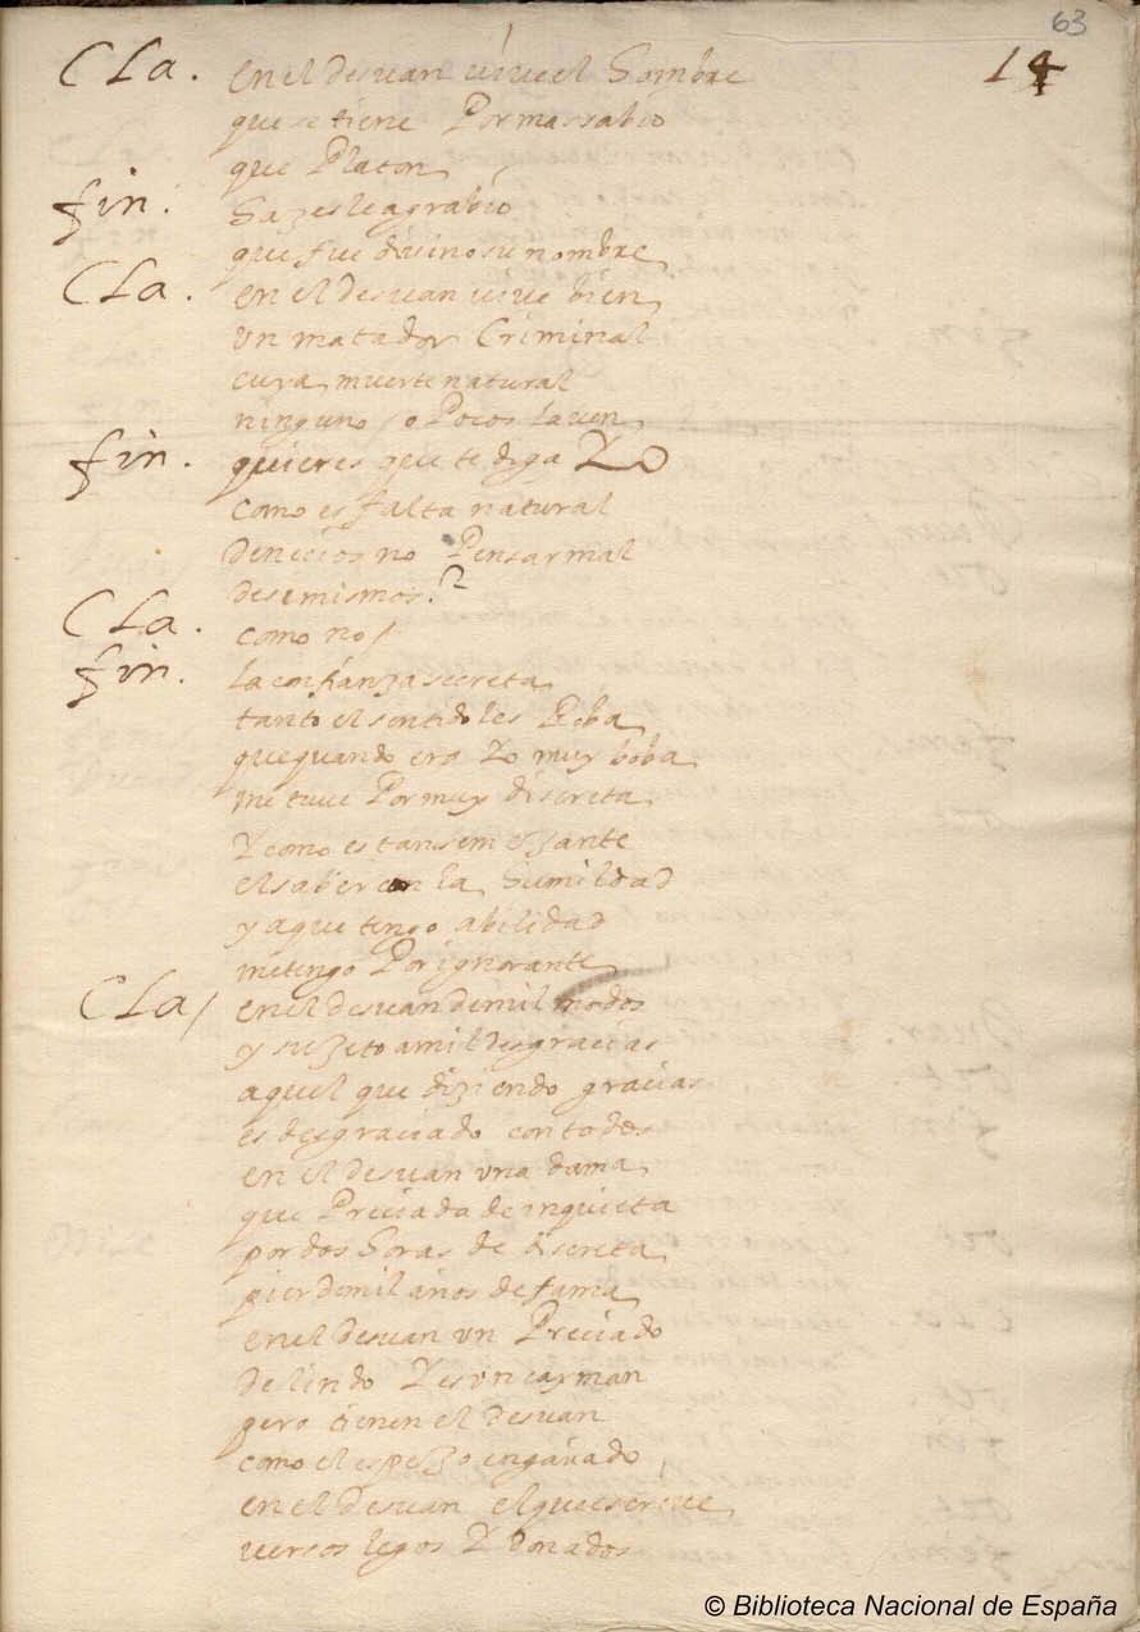 63
14
CLa. en el desuan uiue el Hombre
que se tiene Por mas sabio
que Platon
fin. Hazesle agrabio
que fue diuino su nombre
CLa. en el desuan uiue bien
vn matador Criminal
cuya muerte natural
ninguno / o Pocos la uen
fin. quieres que te diga Yo
como es falta natural
de necios no Pensar mal
de si mismos?
CLa. como no /
fin. la confianza secreta
tanto el sentido les Roba
que quando era Yo muy boba
me tuue Por muy discreta
Y como es tan semejante
el saber con la Humildad
y a que tengo abilidad
me tengo Por ignorante
CLa / en el desuan de mil modos
y sujeto a mil desgracias
aquel que diziendo gracias
es desgraciado con todos
en el desuan vna dama
que Preciada de inquieta
por dos Horas de discreta
pierde mil años de fama
en el desuan vn Preciado
de lindo Y es vn cayman
pero tienen el desuan
como el espejo engañado
en el desuan el que escriue
uersos legos Y donados
© Biblioteca Nacional de España